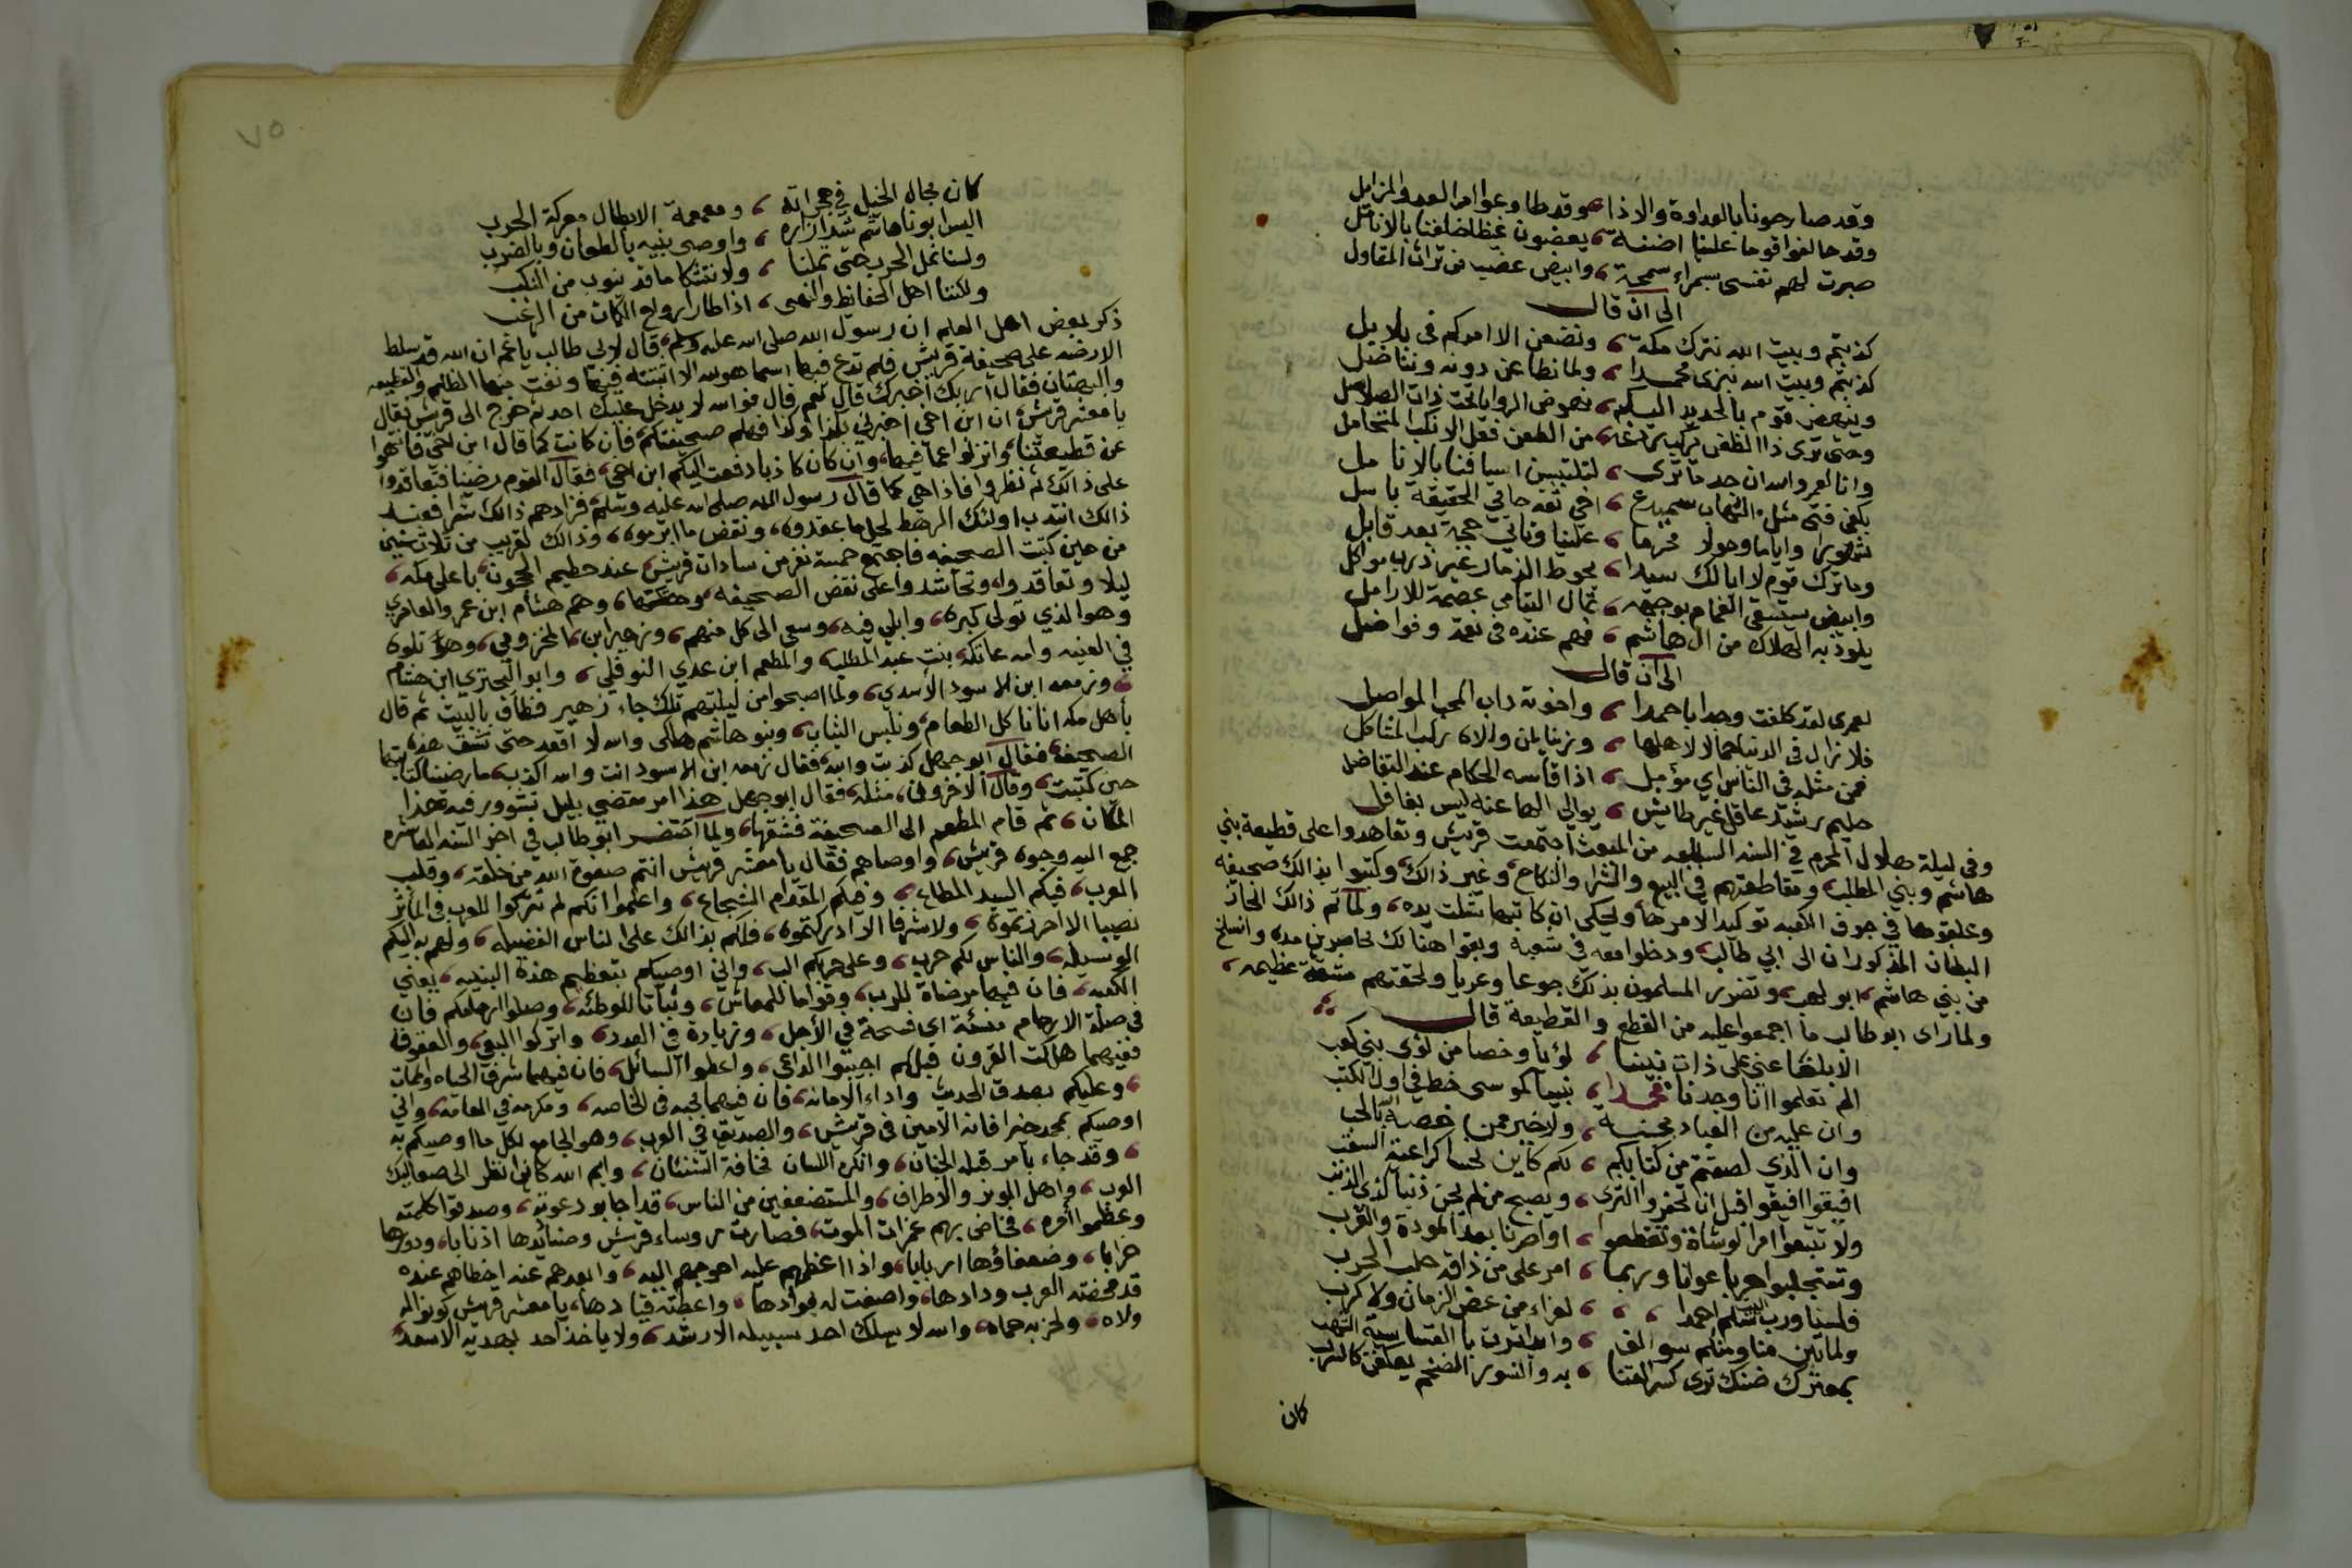 وقد صارحونا بالعداوة والاذا وقد طاوعوا امر العدو المزايل
وقد حالفوا قوما علينا اضنة يعضون غيظا خلفنا بالانامل
صبرت لهم نفسي بسمراء سمحة وابيض عضب من تراث المقاول
الى ان قال
كذبتم وبيت الله نترك مكة ونضعن الا امركم في بلابل
كذبتم وبيت الله نبزى محمدا ولما نطاعن دونه ونناضل
وينهض قوم بالحديد اليكم نهوض الروايا تحت ذات الصلاصل
وحتى نرى ذا الظغن يركب ردعه من الطعن فعل الانكب المتحامل
وانا لعمرو الله ان جد ما نرى لتلتبسن اسيافنا بالانامل
بكفي فتى مثل الشهاب سميدع اخي ثقة حامي الحقيقة باسل
شهورا واياما وحولا محرما علينا وتاتي حجة بعد قابل
وما ترك قوم لا ابالك سيدا يحوط الذمار غير ذرب مواكل
وابيض يستسقى الغمام بوجهه ثمال اليتامي عصمة للارامل
يلوذ به الهلاك من ال هاشم فهم عنده في نعمة وفواضل
الى ان قال
لعمري لقد كلفت وجدا باحمدا واخوته داب المحب المواصل
فلا زال في الدنيا جمالا لاهلها وزينا لمن والاه رب المشاكل
فمن مثله في الناس اي مؤمل اذا قاسه الحكام عند التفاضل
حليم رشيد عاقل غير طايش يوالي الها عنه ليس بغافل
وفي ليلة هلال المحرم في السنه السابعه من المبعث اجتمعت قريش وتعاهدوا على قطيعة بني
هاشم وبني المطلب ومقاطعتهم في البيع والشرا والنكاح وغير ذالك وكتبوا بذالك صحيفه
وعلقوها في جوف الكعبه توكيدا لامرها ويحكى ان كاتبها شلت يده ولما تم ذالك انحاز
البطنان المذكوران الى ابي طالب ودخلوا معه في شعبه وبقوا هنالك محاصرين مده وانسلخ
من بني هاشم ابو لهب وتضرر المسلمون بذلك جوعا وعريا ولحقتهم مشقة عظيمه
ولما راى ابو طالب ما اجمعوا عليه من القطع والقطيعة قال
الا بلغا عني على ذات بيننا لؤيا وخصا من لؤي بني كعب
الم تعلموا انا وجدنا محمدا نبيا كموسى خط في اول الكتب
وان عليه من العباد محبة ولا خير ممن خصه الله بالحب
وان الذي لصقتم من كتابكم لكم كاين نحسا كراغية السقب
افيقوا افيقوا قبل ان تحفر الثرى ويصبح من لم يجن ذنبا كذي الذنب
ولا تتبعوا امر الوشاة وتقطعوا اواصرنا بعد المودة والقرب
وتستجلبوا حربا عوانا وربما امر على من ذاقه حلب الحرب
فلسنا ورب البيت نسلم احمدا لعزاء من عض الزمان ولا كرب
ولما تبن منا ومنكم سوالف وايد اترت بالقساسية الشهب
بمعترك ضنك ترى كسر القنا به والنسور الضخم يعكفن كالشرب
كان
٧٥
كان مجال الخيل في حجراته ومعمعة الابطال معركة الحرب
اليس ابونا هاشم شد ازاره واوصى بنيه بالطعان وبالضرب
ولسنا نمل الحرب حتى تملنا ولا نتشكا ما قد ينوب من النكب
ولكننا اهل الحفائظ والنهى اذا طار ارواح الكمات من الرعب
ذكر بعض اهل العلم ان رسول الله صلى الله عليه وسلم قال لابي طالب يا عم ان الله قد سلط
الارضه على صحيفة قريش فلم تدع فيها اسما هو لله الا اثبتته فيها ونفت منها الظلم والقطيعه
والبهتان فقال اربك اخبرك قال نعم قال فوالله لا يدخل عليك احد ثم خرج الى قريش فقال
يا معشر قريش ان ابن اخي اخبرني بكذا وكذا فهلم صحيفتكم فان كانت كما قال ابن اخي فانتهوا
عن قطيعتنا وانزلوا عما فيها وان كان كاذبا دفعت اليكم ابن اخي فقال القوم رضينا فتعاقدوا
على ذالك ثم نظروا فاذا هي كما قال رسول الله صلى الله عليه وسلم فزادهم ذالك شرا فعند
ذالك انتدب اولئك الرهط لحل ما عقدوه ونقض ما ابرموه وذالك لقريب من ثلاث سنين
من حين كتبت الصحيفه فاجتمع خمسة نفر من سادات قريش عند حطيم الحجون باعلى مكه
ليلا وتعاقدوا وتحاشدوا على نقض الصحيفه وهم هشام ابن عمرو العامري
وهو الذي تولى كبره وابلى فيه وسعى الى كل منهم وزهير ابن المخزومي وهو تلوه
في العينه وامه عاتكة بنت عبد المطلب والمطعم ابن عدي النوفلي وابو البحتري ابن هشام
وزمعه ابن الاسود الاسدي ولما اصبحوا من ليلتهم تلك جاء زهير فطاف بالبيت ثم قال
يا هل مكه انا ناكل الطعام ونلبس الثياب وبنو هاشم هلكى والله لا اقعد حتى تشق هذه
الصحيفه فقال ابو جهل كذبت والله فقال زمعه ابن الاسود انت والله اكذب ما رضينا كتابتها
حين كتبت وقال الاخرون مثله فقال ابو جهل هذا امر مقضي بليل تشوور فيه هذا
المكان ثم قام المطعم الى الصحيفة فشقها ولما احتضر ابو طالب في اخر السنه العاشره
جمع اليه وجوه قريش واوصاهم فقال يا معشر قريش انتم صفوة الله من خلقه وقلب
العرب فيكم السيد المطاع وفيكم المقدام الشجاع واعلموا انكم لم تتركوا للعرب في المآثر
نصيبا الا احرزتموه ولا شرفا الا ادركتموه فلكم بذالك على الناس الفضيله ولهم به اليكم
الوسيله والناس لكم حرب وعلى حربكم الب واني اوصيكم بتعظيم هذه البنيه يعني
الكعبه فان فيها مرضاة للرب وقواما للمعاش وثباتا للوطئه وصلوا ارحامكم فان
في صلة الارحام منسئة اي فسحة في الاجل وزيادة في العدد واتركوا البغي والعقوق
ففيهما هلكت القرون قبلكم اجيبوا الداعي واعطوا السائل فان فيهما شرف الحياه والممات
وعليكم بصدق الحديث واداء الامانه فان فيهما محبه في الخاصه ومكرمه في العامه واني
اوصيكم بمحمد خيرا فانه الامين في قريش والصديق في العرب وهو الجامع لكل ما اوصيكم به
وقد جاء بامر قبله الجنان وانكره اللسان مخافة الشنئان وايم الله كاني انظر الى صعاليك
العرب واهل الوبر والاطراف والمستضعفين من الناس قد اجابو دعوته وصدقوا كلمته
وعظموا امره فخاض بهم غمرات الموت فصارت روساء قريش وصناديدها اذنابا ودورها
خرابا وضعفاؤها اربابا واذا اعظمهم عليه احوجهم اليه وابعدهم عنه احظاهم عنده
قد محضته العرب ودادها واصفت له فوادها واعطته قيادها يا معشر قريش كونوا له
ولاه ولحزبه حماه والله لا يسلك احد سبيله الا رشد ولا ياخذ احد بهديه الا سعد